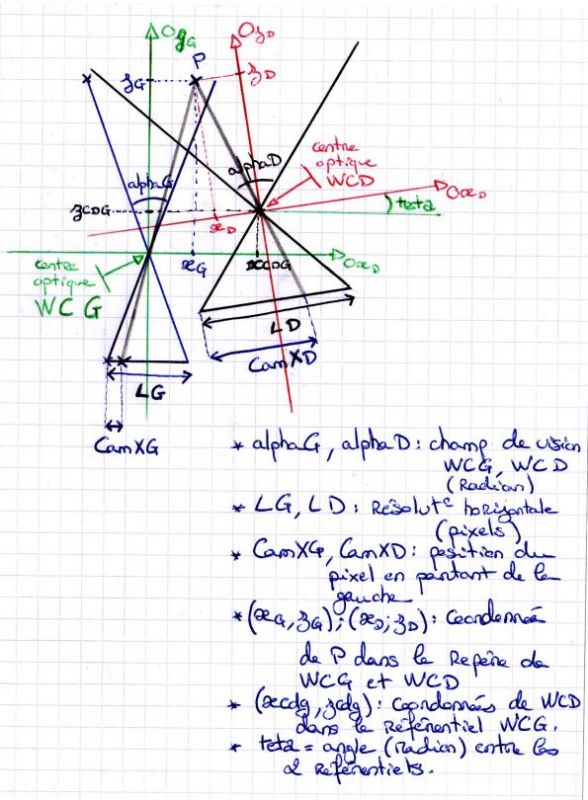 OzG
OzD
P
zG
zD
alphaG
alphaD
centre
optique
WCD
OxD
teta
zCDG
xD
centre
optique
WCG
xG
xCDG
OxD
LD
CamXD
LG
CamXG
* alphaG, alphaD : champ de vision
WCG, WCD
(Radian)
* LG, LD : Résolut° horizontale
(pixels)
* CamXG, CamXD : position du
pixel en partant de la
gauche
* (xG, zG) ; (xD; zD) : Coordonnées
de P dans le Repère de
WCG et WCD
* (xcdg, zcdg) : Coordonnées de WCD
dans le référentiel WCG.
* teta = angle (radian) entre les
2 référentiels.